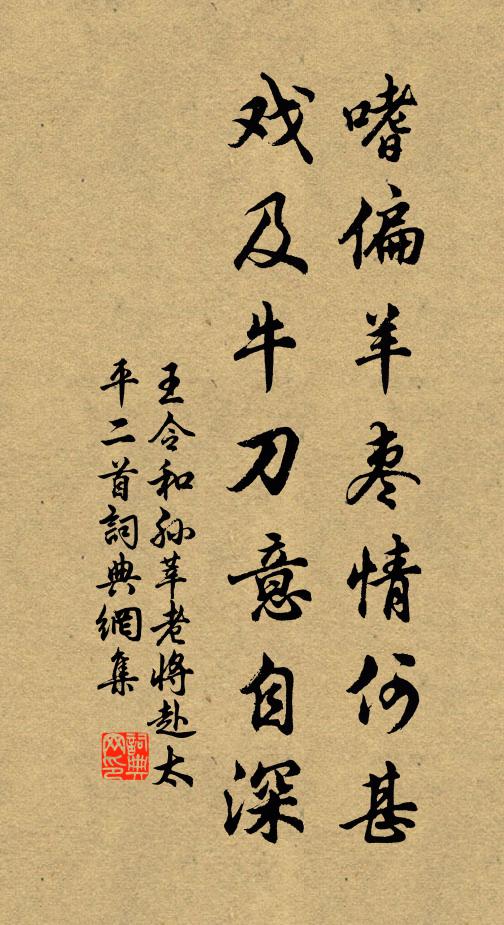 嗜偏羊枣情何甚
戏及牛刀意自深
王令和孙莘老将赴太
平二首詞典網集
詞典網印